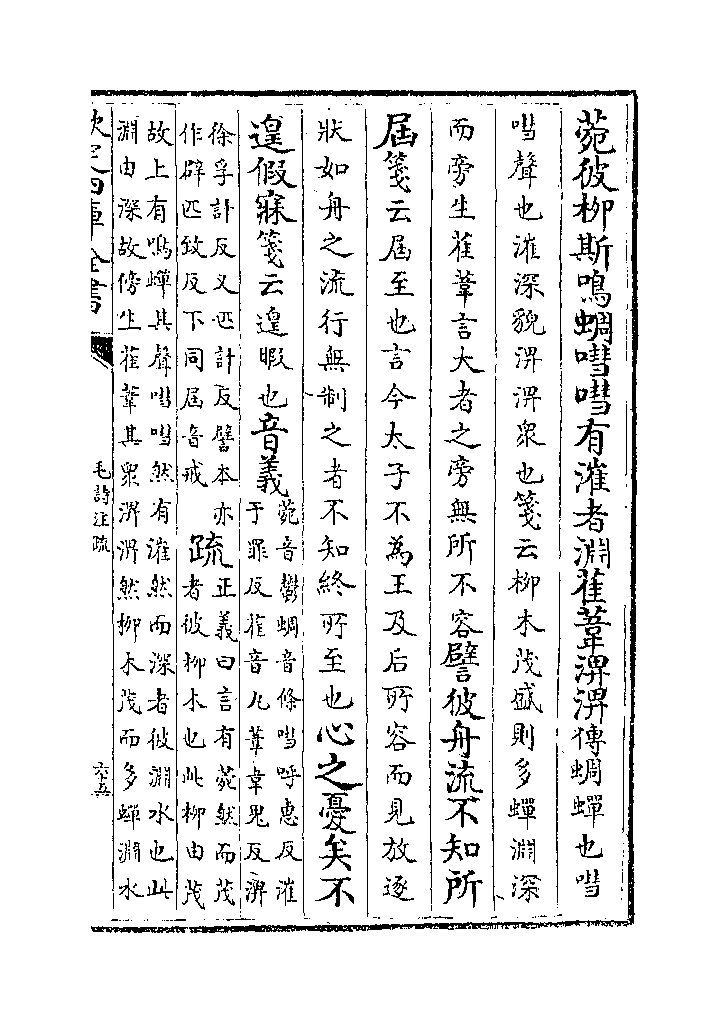 菀彼柳斯鳴蜩嘒嘒有漼者淵萑葦淠淠傳蜩蟬也嘒
嘒聲也漼深貌淠淠衆也箋云柳木茂盛則多蟬淵深
而旁生萑葦言大者之旁無所不容譬彼舟流不知所
屆箋云屆至也言今太子不為王及后所容而見放逐
狀如舟之流行無制之者不知終所至也心之憂矣不
遑假寐箋云遑暇也音義菀音鬱蜩音條嘒呼惠反漼
于罪反萑音丸葦韋鬼反淠
徐孚計反又匹計反譬本亦
作辟匹致反下同屆音戒 疏正義曰言有菀然而茂
者彼柳木也此柳由茂
故上有鳴蟬其聲嘒嘒然有漼然而深者彼淵水也此
淵由深故傍生萑葦其衆淠淠然柳木茂而多蟬淵水
欽定四庫全書
毛詩注疏
六十五